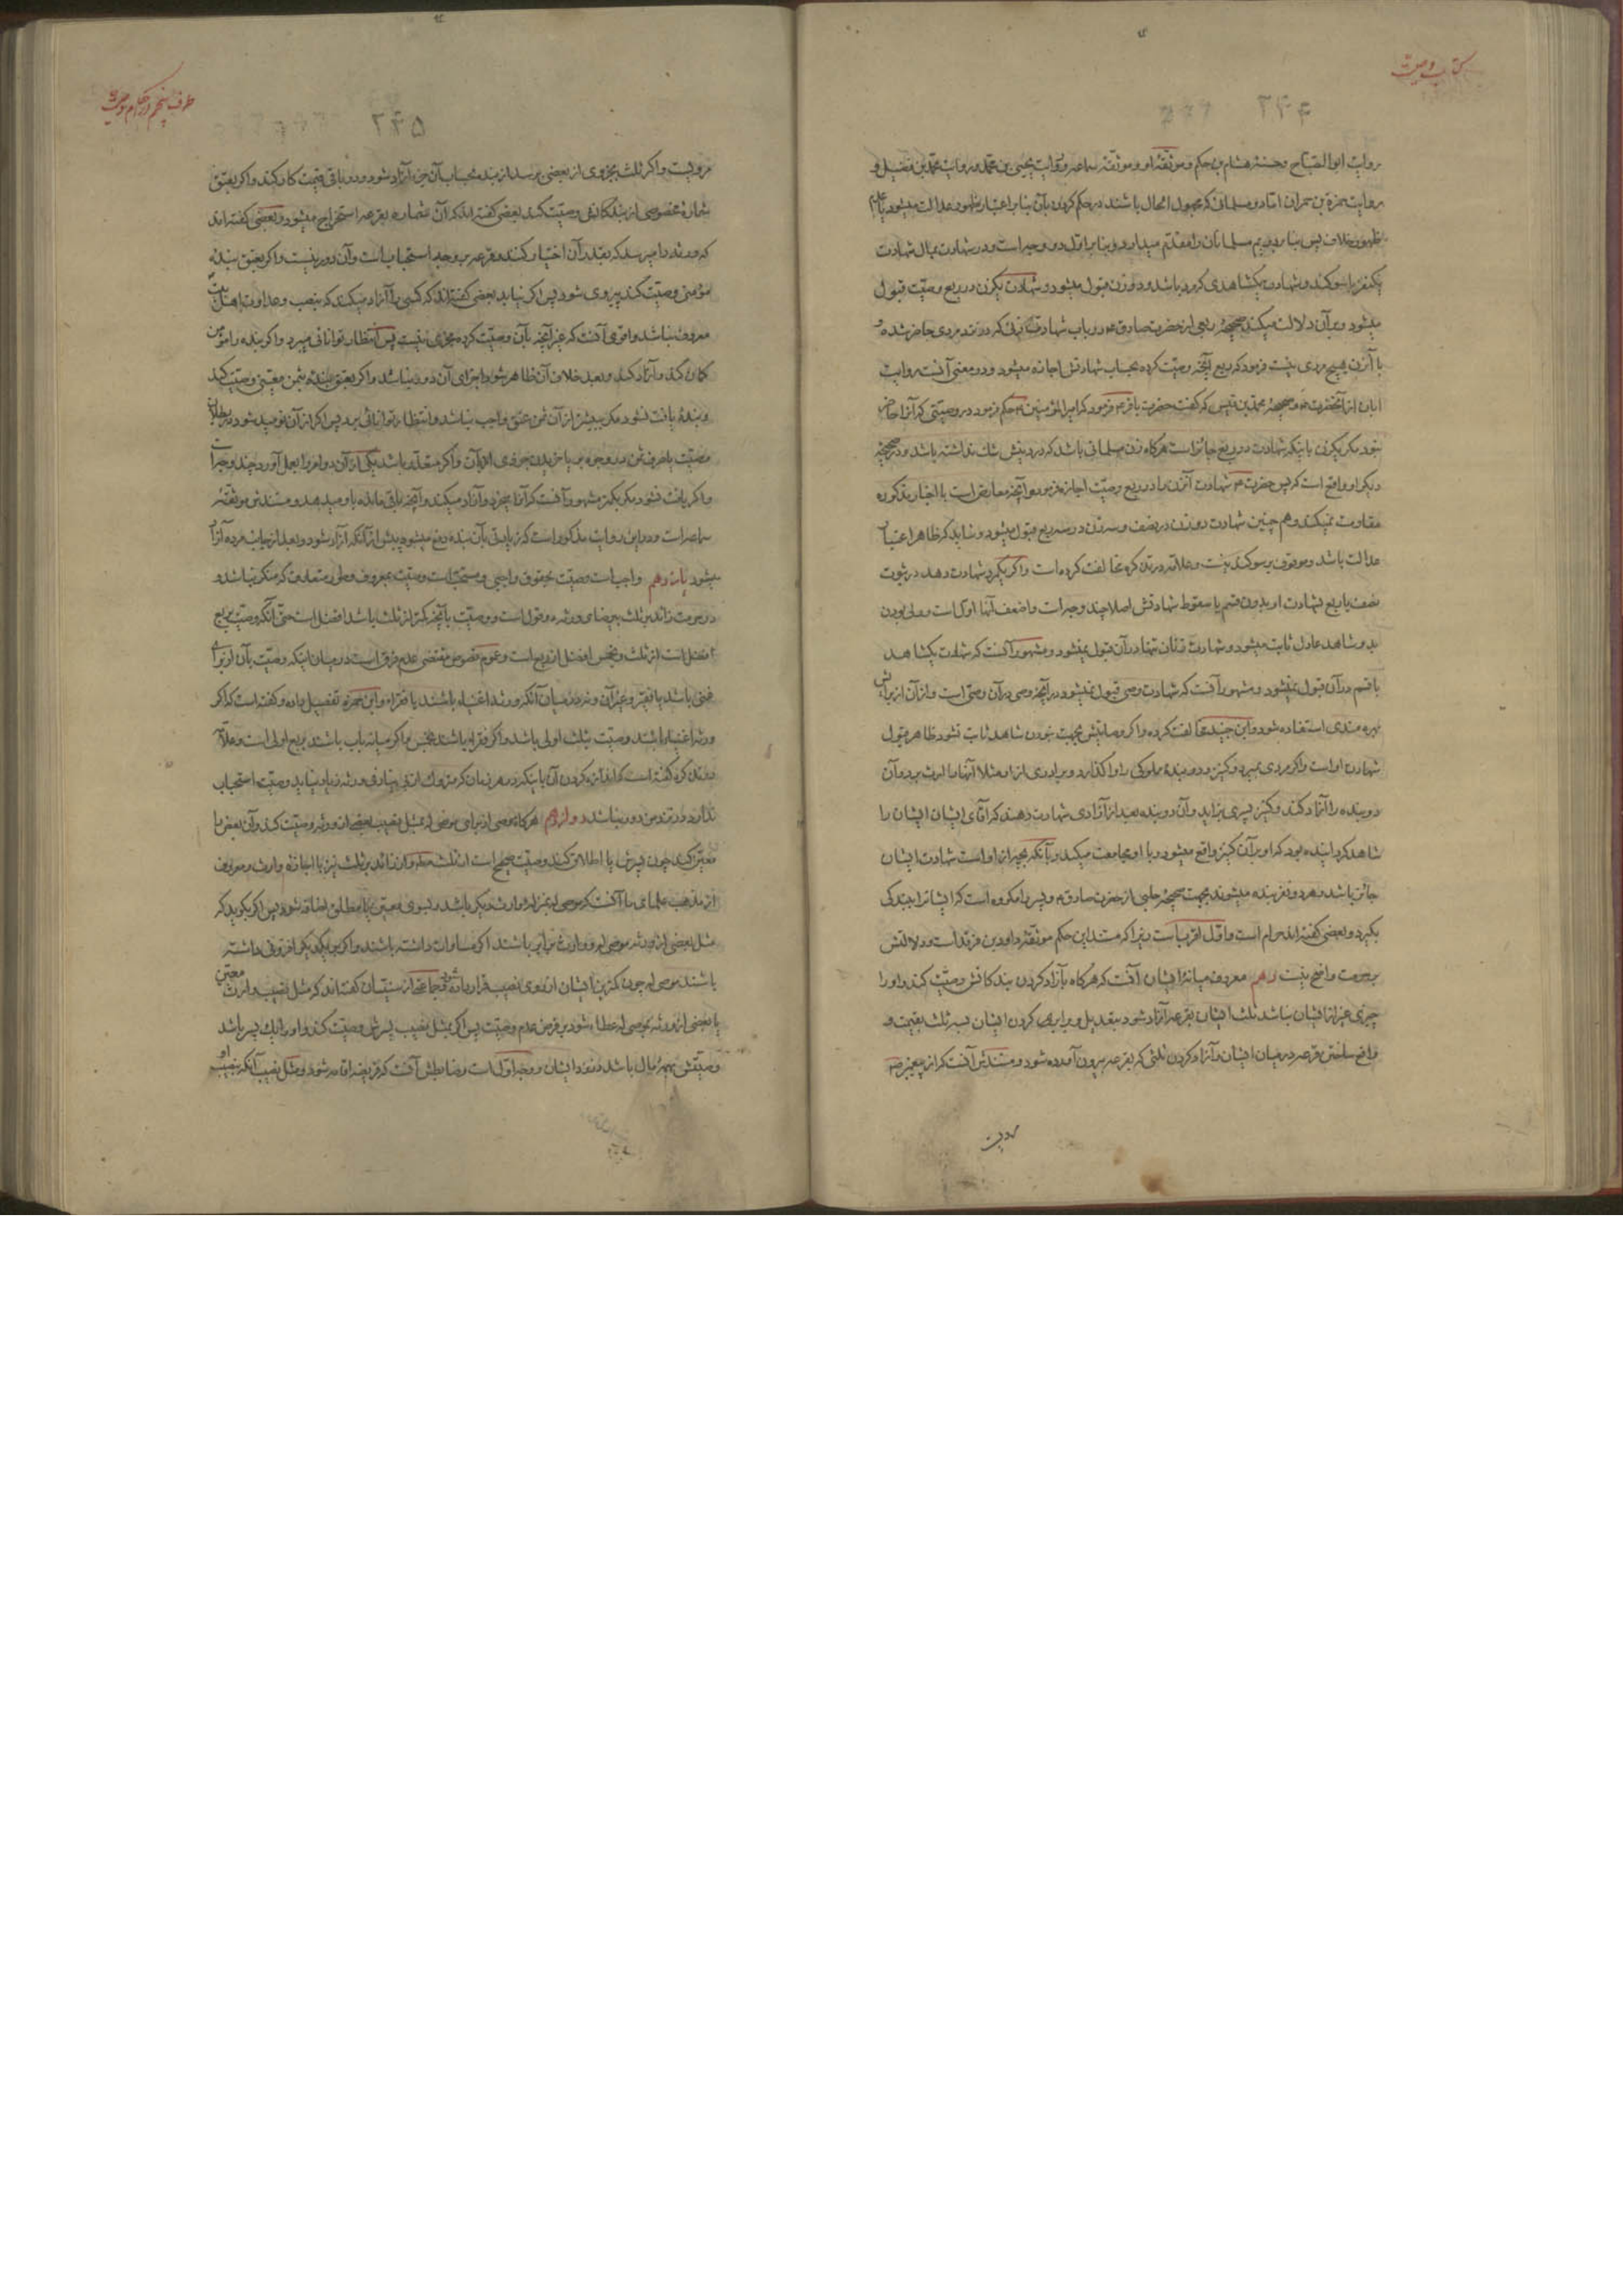 کتاب وصیت
۲۴۴
روایت ابو الصباح و حسنهٔ هشام بن حکم و موثقهٔ او و موثقهٔ سماعه و روایت یحیی بن محمد و روایت محمد بن فضیل و
روایت حمزة بن حمران اما دو مسلمانی که مجهول الحال باشند در حکم کردن بآن بنا بر اعتبار ظهور عدالت میشود یا عدم
ظهور خلاف پس بنا بر دویم مسلمانان را مقدم میدارد و بنا بر اول دو وجه است و در شهادت بمال شهادت
یکنفر با سوکند و شهادت یکشاهدی که مرد باشد و دو زن قبول میشود و شهادت یکزن در ربع وصیت قبول
میشود و بر آن دلالت میکند صحیحهٔ ربعی از حضرت صادق ع در باب شهادت زنی که در نزد مردی حاضر شده و
با آنزن هیچ مردی نیست فرمود که ربع آنچه وصیت کرده بحساب شهادتش اجازه میشود و در معنی آنست روایت
ابان از آنحضرت ع و صحیحهٔ محمد بن قیس که گفت حضرت باقر ع فرمود که امیر المؤمنین ع حکم فرمود در وصیتی که آنرا حاضر
نبود مکر یکزن باینکه شهادت در ربع جائز است هرگاه زن مسلمانی باشد که در دینش شک نداشته باشد و در صحیحهٔ
دیکر او واقع است که پس حضرت ع شهادت آنزن را در ربع وصیت اجازه فرمود و آنچه معارض است با اخبار مذکوره
مقاومت نمیکند و هم چنین شهادت دو زن در نصف و سه زن در سه ربع قبول میشود و شاید که ظاهر اعتبار
عدالت باشد و موقوف بر سوکند نیست و علامه در تذکره مخالفت کرده است و اگر یکمرد شهادت دهد در ثبوت
نصف یا ربع بشهادت او بدون قسم یا سقوط شهادتش اصلا چند وجه است و اضعف آنها اول است و ولی بودن
بدو شاهد عادل ثابت میشود و شهادت زنان تنها در آن قبول نمیشود و مشهور آنست که شهادت یکشاهد
با قسم در آن قبول نمیشود و مشهور آنست که شهادت وصی قبول نمیشود در آنچه وصی در آن وصی است و از آن از برایش
بهره مندی استفاده شود و ابن جنید مخالفت کرده و اگر وصایتش بجهت نبودن شاهد ثابت نشود ظاهر قبول
شهادت او است و اگر مردی بمیرد و کنیز و دو بندهٔ مملوکی را واکذارد و برادری از او مثلا آنها را ارث برد و آن
دو بنده را آزاد کند و کنیز پسری بزاید و آن دو بنده بعد از آزادی شهادت دهند که آقای ایشان ایشان را
شاهد گردانیده بود که او بر آن کنیز واقع میشود و با او مجامعت میکند و بآنکه بچه از او است شهادت ایشان
جائز باشد و هر دو نفر بنده میشوند بجهت صحیحهٔ حلبی از حضرت صادق ع و پسر را مکروه است که ایشانرا ببندکی
بکیرد و بعضی گفته اند حرام است و اول اقرب است زیرا که مستند این حکم موثقهٔ داود بن فرقد است و دلالتش
بر حرمت واضح نیست دهم معروف میانهٔ ایشان آنست که هرکاه بآزاد کردن بندکانش وصیت کند و او را
چیزی غیر از ایشان نباشد ثلث ایشان بقرعه آزاد شود بتعدیل و برابر کردن ایشان بسه ثلث بقیمت و
واقع ساختن قرعه در میان ایشان و آزاد کردن ثلثی که بقرعه بیرون آورده شود و مستندش آنست که از پیغمبر ص
طرف پنجم در احکام وصیت
۲۴۵
مرویست و اگر ثلث بجزوی از بعضی برسد از بنده بحساب آن جزء آزاد شود و در باقی قیمت کار کند و اگر بعتق
شمارهٔ مخصوصی از بندکانش وصیت کند بعضی گفته اند که آن شماره بقرعه استخراج میشود و بعضی گفته اند
که ورثه را میرسد که بقدر آن اختیار کنند و قرعه بر وجه استحباب است و آن دور نیست و اگر بعتق بندهٔ
مؤمنی وصیت کند پیروی شود پس اگر نیابد بعضی گفته اند که کسی را آزاد میکند که بنصب و عداوت اهل بیت
معروف نباشد و اقوی آنست که غیر آنچه بآن وصیت کرده مجزی نیست پس انتظار توانائی میبرد و اگر بنده را مؤمن
کمان کند و آزاد کند و بعد خلاف آن ظاهر شود اجزای آن دور نباشد و اگر بعتق بندهٔ بثمن معینی وصیت کند
و بندهٔ یافت نشود مکر ببیشتر از آن ثمن عتق واجب نباشد و انتظار توانائی برد پس اگر از آن نومید شود در بطلان
وصیت یا صرف ثمن در وجوه بر یا خریدن جزوی
و اگر یافت نشود مکر بکمتر مشهور آنست که آنرا میخرد و آزاد میکند و آنچه باقی مانده باو میدهد و مستندش موثقهٔ
سماعه است و در این روایت مذکور است که زیادتی بآن بنده دفع میشود پیش از آنکه آزاد شود و بعد از جانب مرده آزاد
میشود یازدهم واجب است وصیت بحقوق واجبی و مستحب است وصیت بمعروف و طور متعارف که منکر نباشد و
در حرمت زائد بر ثلث بی رضای ورثه دو قول است و وصیت بآنچه کمتر از ثلث باشد افضل است حتی آنکه وصیت بربع
افضل است از ثلث و بخمس افضل از ربع است و عموم نصوص مقتضی عدم فرق است در میان اینکه وصیت بآن از برای
غنی باشد یا فقیر و غیر آن و نه در میان آنکه ورثه اغنیاء باشند یا فقراء و ابن حمزه تفصیل داده و گفته است که اگر
ورثه اغنیاء باشند وصیت بثلث اولی باشد و اگر فقراء باشند بخمس و اگر میانه باب باشند بربع اولی است و علامه
در تذکره گفته است که
ندارد و در نزد من دور نباشد دوازدهم هرکاه موصی از برای موصی له بمثل نصیب بعضی از ورثه وصیت کند و آن بعض را
معین کند چون پسرش یا اطلاق کند وصیت صحیح است از ثلث مطلقا و از زائد بر ثلث نیز با اجازهٔ وارث و معروف
از مذهب علمای ما آنست که موصی له بمنزلهٔ وارث دیکر باشد و بسوی معین یا مطلق اضافه شود پس اگر بکوید که
مثل بعضی از ورثه موصی له و وارث برابر باشند اگر مساوات داشته باشند و اگر بر یکدیکر افزونی داشته
باشند موصی له چون کمترین ایشان از روی نصیب قرار داده شود و جماعتی از سنیان گفته اند که مثل نصیب وارث معین
یا بعضی از ورثه بموصی له عطاء شود بر فرض عدم وصیت پس اگر بمثل نصیب پسرش وصیت کند و او را یک پسر باشد
وصیتش بهمهٔ مال باشد در نزد ایشان و وجه اول است و ضابطش آنست که فریضه اقامه شود و مثل نصیب آنکه نصیب او